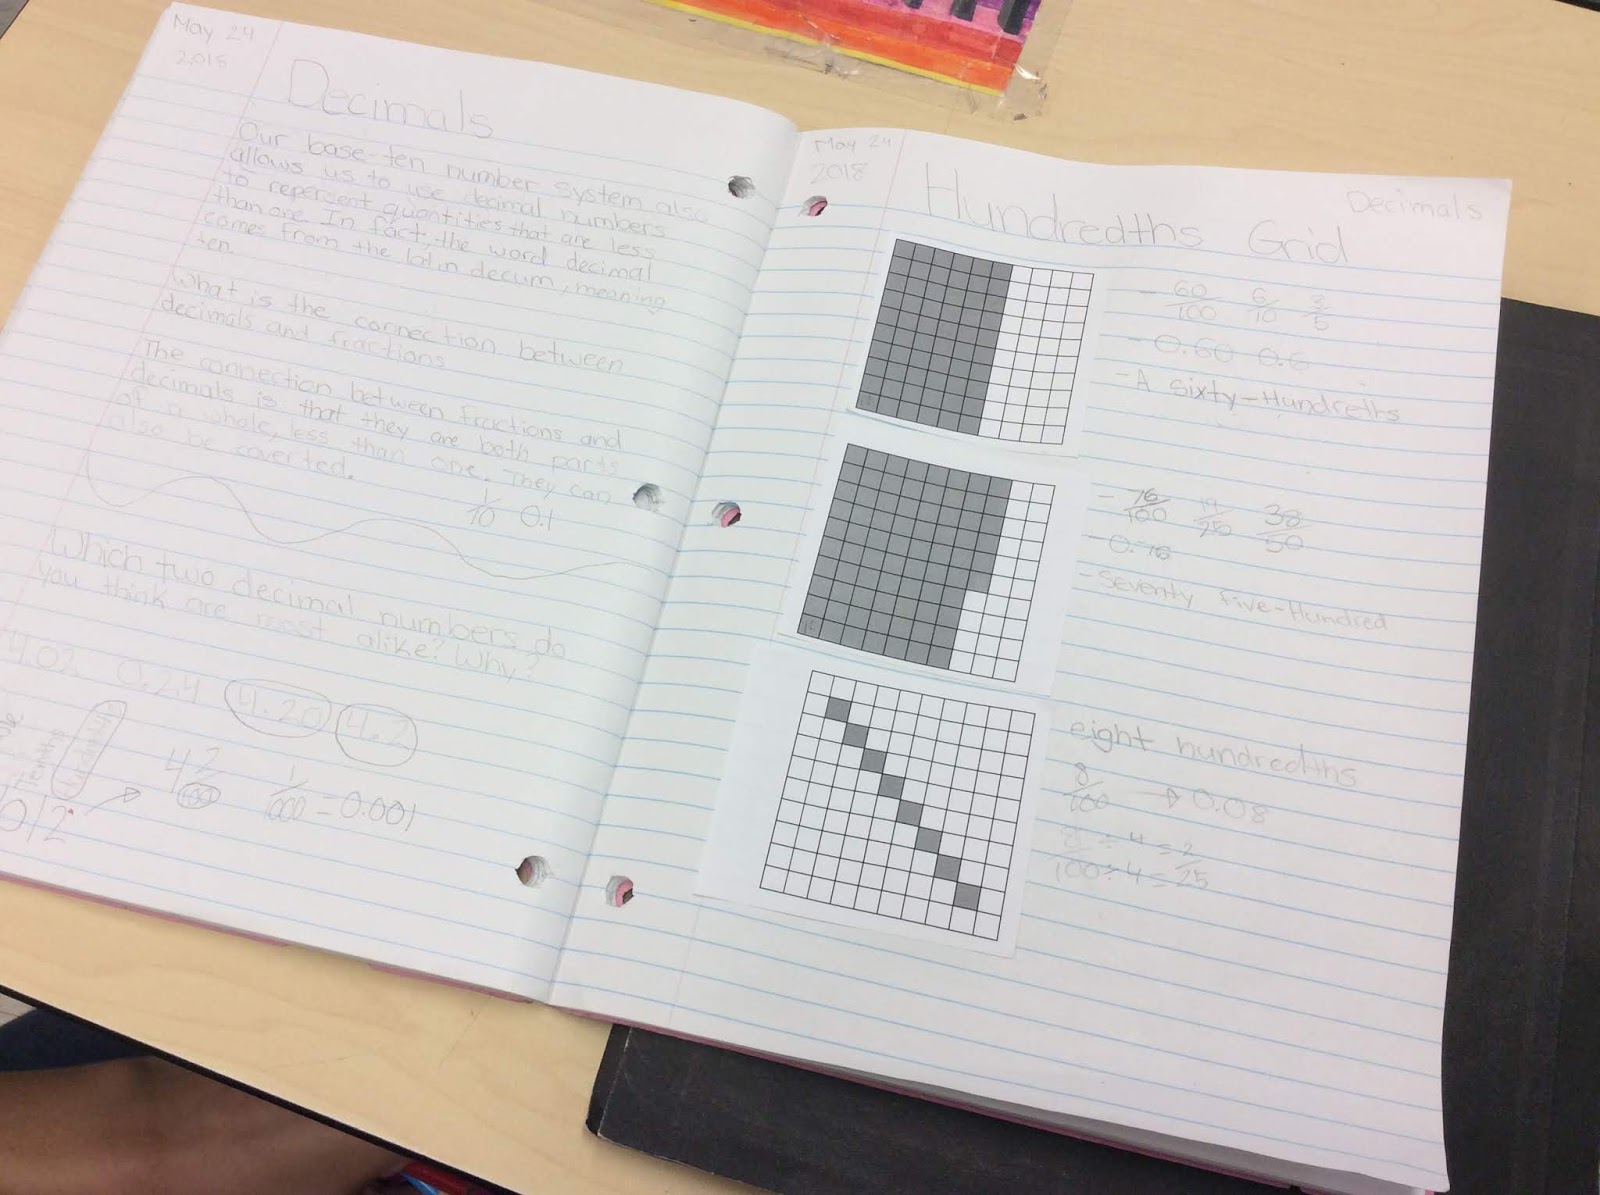 May 24
2018
Decimals
Our base-ten number system also
allows us to use decimal numbers
to repersent quantities that are less
than one. In fact, the word decimal
comes from the latin decum, meaning
ten.
What is the connection between
decimals and fractions
The connection between fractions and
decimals is that they are both parts
of a whole, less than one. They can
also be coverted.
1/10 0.1
Which two decimal numbers do
you think are most alike? Why?
4.02 0.24 4.20 4.2
Tennths
4 2/100 1/1000 = 0.001
May 24
2018
Decimals
Hundredths Grid
- 60/100 6/10 3/5
- 0.60 0.6
- A sixty-Hundreths
- 76/100 19/25 38/50
- 0.76
- Seventy five-Hundred
eight hundredths
8/100 → 0.08
8 ÷ 4 = 2
100 ÷ 4 = 25